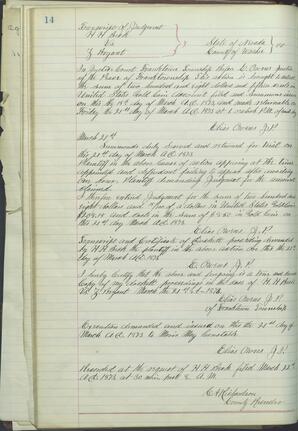 14
Transcript of Judgment
H H Beck
vs
Z Bryant
State of Nevada
County of Washoe } ss
In Justice Court Franktown Township before E Owens Justice
of the Peace of Franktown Township This action is brought to
the sum of two hundred and eight dollars and fifteen cents in
United States Gold Coin
on this the 18th day of March A.D. 1873 and made returnable on
Friday the 21st day of March A.D. 1873 at 2 o'clock P.M. of said day
Elias Owens J.P.
March 21st
Summons duly served and returned for trial on
this 21st day of March A.D. 1873
Plaintiff in the above cause of action appearing at the time
appointed and defendant failing to appear after waiting
one hour. Plaintiff demanding Judgment for the amount
claimed
I therefore entered Judgment for the sum of two hundred and
eight dollars and of a dollar in United States Gold Coin
and costs in the sum of in Gold Coin on
this 21st day March A.D. 1873
Elias Owens J.P.
Transcript and Certificate of Docket demanded
by H H Beck the plaintiff in the above action on this the 21st
day of March A.D. 1873
Elias Owens J.P.
I hereby Certify that the above and foregoing is a true and correct
Copy of my docket proceedings in the case of H H Beck
vs Z Bryant March the 21st A.D. 1873
Elias Owens J.P.
of Franktown Township
Execution demanded and issued on this the 21st day of
March A.D. 1873 to Constable
Elias Owens J.P.
Recorded at the request of H H Beck filed March 22nd
A.D. 1873 at 30 min past 8 A.M.
C A Richardson
County Recorder